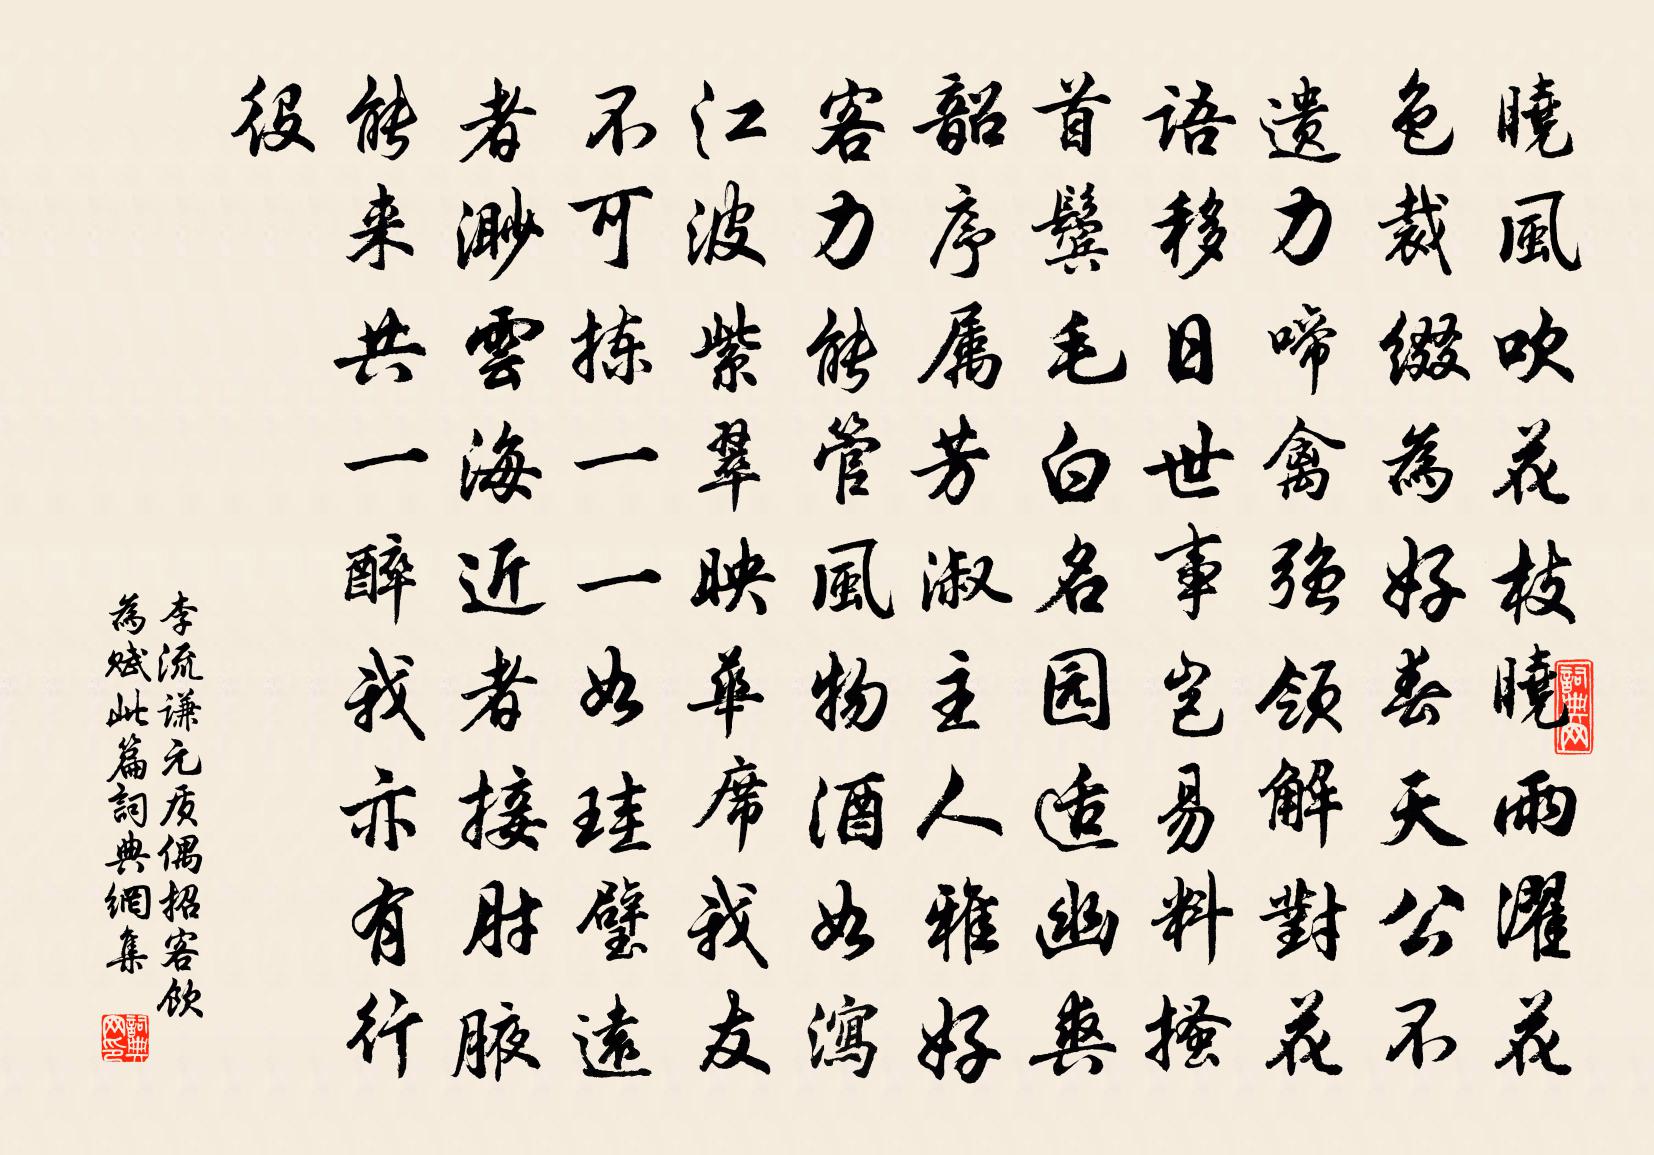 曉風吹花枝曉雨濯花
色裁綴為好春天公不
遗力啼禽强领解對花
語移日世事岂易料搔
首鬓毛白名园适幽爽
韶序属芳淑主人雅好
客力能管風物酒如瀉
江波紫翠映華席我友
不可拣一一如珪璧遠
者渺雲海近者接肘腋
能来共一醉我亦有行
役
李流谦元质偶招客飲
為赋此篇詞典網集
詞典网
詞典网印